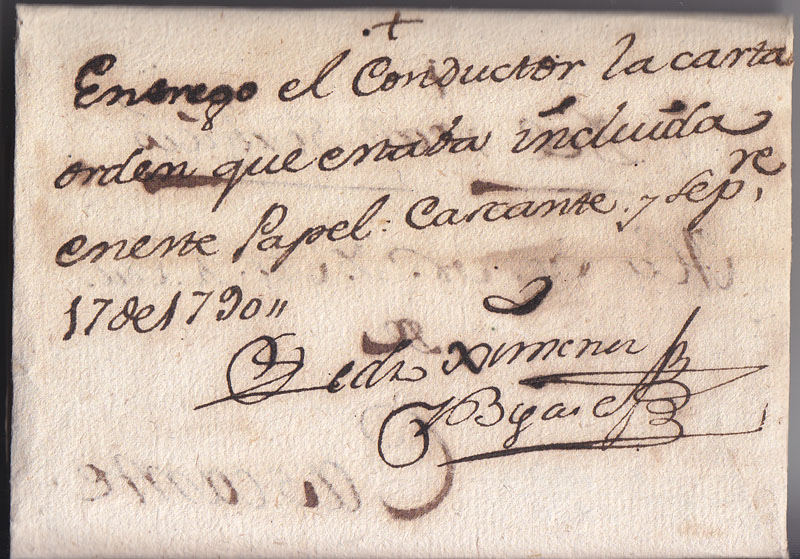 +
Entrego el Conductor la carta
orden que estaba incluida
en este Papel. Cascante y Sepre
17 de 1790
Ximenez